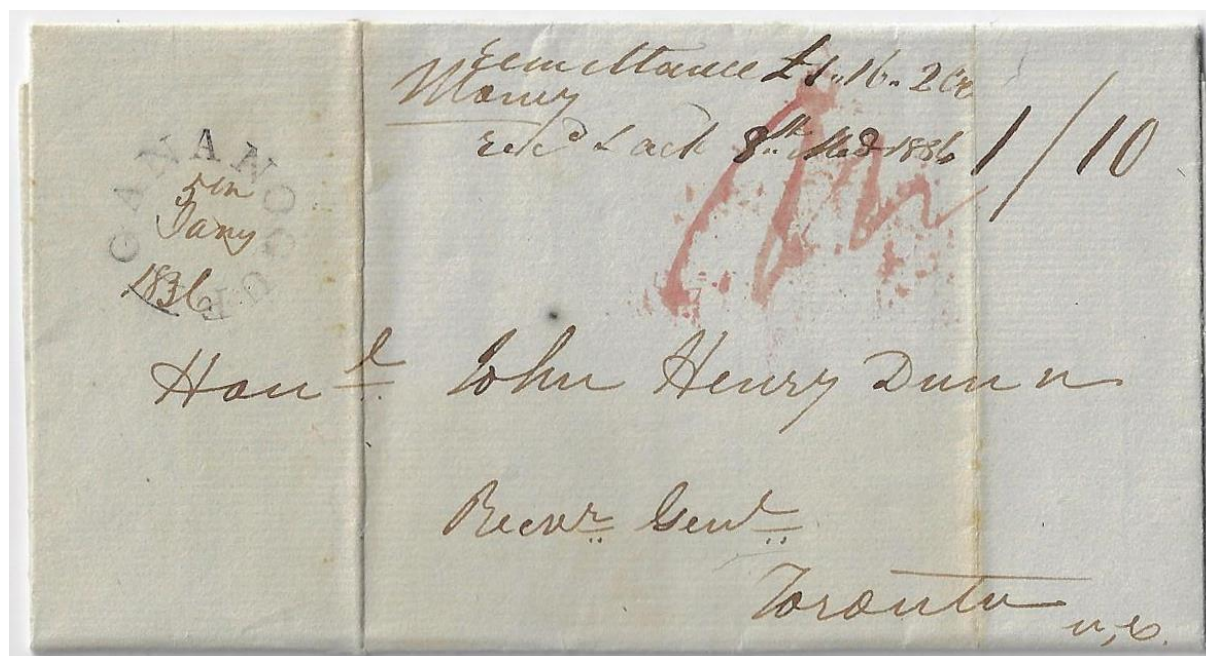 remittance £1.16.2
Money
rec'd & ack 8th 1836
1/10
GANANOQUE
5th
Jany
1836
Honl John Henry Dunn
Recvr Genl
Toronto
U,C.